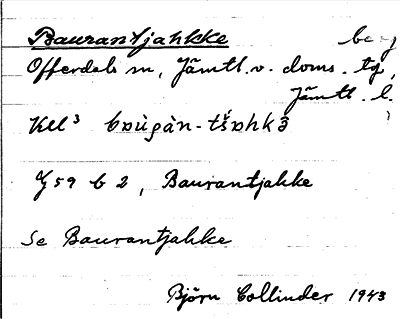 Baurantjahkke berg
Offerdals sn, Jämtl. v. doms. tg,
Jämtl. l.
Kll³
G 59 b 2, Baurantjahke
Se Baurantjahke
Björn Collinder 1943